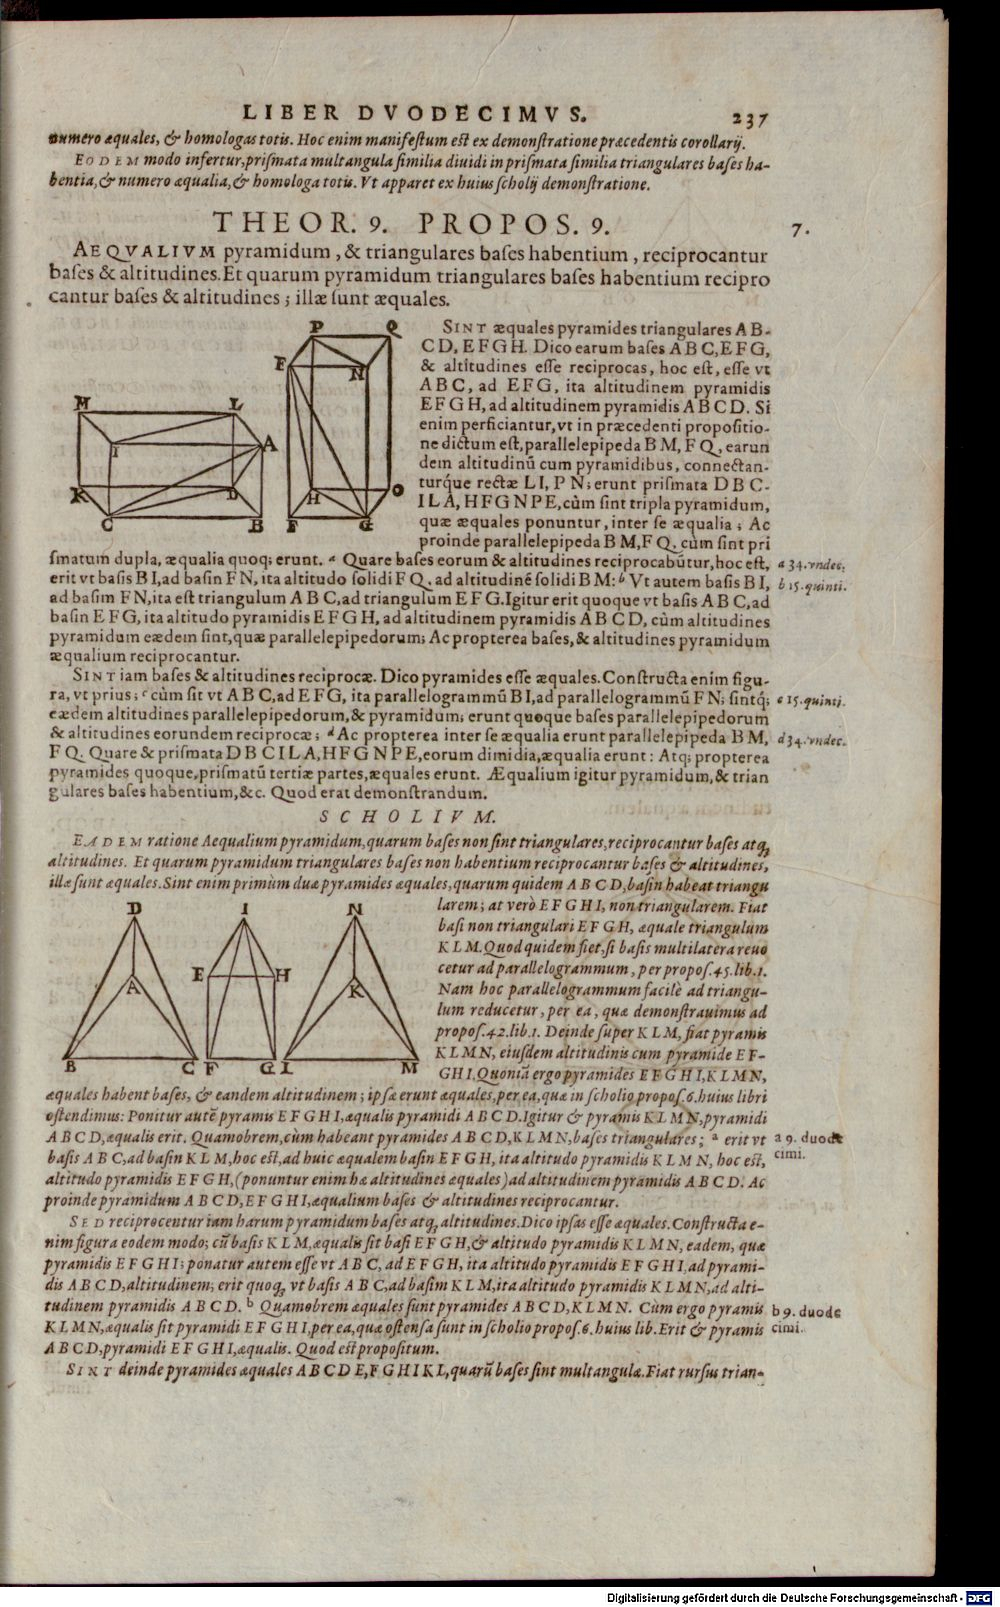 LIBER DVODECIMVS. 237
numero æquales, & homologas totis. Hoc enim manifeſtum eſt ex demonſtratione præcedentis corollarij.
EODEM modo infertur, priſmata multangula ſimilia diuidi in priſmata ſimilia triangulares baſes ha-
bentia, & numero æqualia, & homologa totis. Vt apparet ex huius ſcholij demonſtratione.
THEOR. 9. PROPOS. 9. 7.
AEQVALIVM pyramidum, & triangulares baſes habentium, reciprocantur
baſes & altitudines. Et quarum pyramidum triangulares baſes habentium recipro
cantur baſes & altitudines; illæ ſunt æquales.
P Q
F N
M L
I A
K D H O
C B F G
SINT æquales pyramides triangulares AB-
CD, EFGH. Dico earum baſes ABC, EFG,
& altitudines eſſe reciprocas, hoc eſt, eſſe vt
ABC, ad EFG, ita altitudinem pyramidis
EFGH, ad altitudinem pyramidis ABCD. Si
enim perficiantur, vt in præcedenti propoſitio-
ne dictum eſt, parallelepipeda BM, FQ, earun
dem altitudinū cum pyramidibus, connectan-
turq́ue rectæ LI, PN; erunt priſmata DBC-
ILA, HFGNPE, cùm ſint tripla pyramidum,
quæ æquales ponuntur, inter ſe æqualia; Ac
proinde parallelepipeda BM, FQ, cùm ſint pri
ſmatum dupla, æqualia quoq; erunt. a Quare baſes eorum & altitudines reciprocabūtur, hoc eſt, a 34. vndec.
erit vt baſis BI, ad baſin FN, ita altitudo ſolidi FQ, ad altitudinē ſolidi BM: b Vt autem baſis BI, b 15. quinti.
ad baſim FN, ita eſt triangulum ABC, ad triangulum EFG. Igitur erit quoque vt baſis ABC, ad
baſin EFG, ita altitudo pyramidis EFGH, ad altitudinem pyramidis ABCD, cùm altitudines
pyramidum eædem ſint, quæ parallelepipedorum; Ac propterea baſes, & altitudines pyramidum
æqualium reciprocantur.
SINT iam baſes & altitudines reciprocæ. Dico pyramides eſſe æquales. Conſtructa enim figu-
ra, vt prius; c cùm ſit vt ABC, ad EFG, ita parallelogrammū BI, ad parallelogrammū FN; ſintq́; c 15. quinti.
eædem altitudines parallelepipedorum, & pyramidum; erunt quoque baſes parallelepipedorum
& altitudines eorundem reciprocæ; d Ac propterea inter ſe æqualia erunt parallelepipeda BM, d 34. vndec.
FQ. Quare & priſmata DBCILA, HFGNPE, eorum dimidia, æqualia erunt: Atq; propterea
pyramides quoque, priſmatū tertiæ partes, æquales erunt. Æqualium igitur pyramidum, & trian
gulares baſes habentium, &c. Quod erat demonſtrandum.
SCHOLIVM.
EADEM ratione Aequalium pyramidum, quarum baſes non ſint triangulares, reciprocantur baſes atq;
altitudines. Et quarum pyramidum triangulares baſes non habentium reciprocantur baſes & altitudines,
illæ ſunt æquales. Sint enim primùm duæ pyramides æquales, quarum quidem ABCD, baſin habeat triangu
D I N
A E H K
B C F G L M
larem; at verò EFGHI, non triangularem. Fiat
baſi non triangulari EFGH, æquale triangulum
KLM. Quod quidem fiet, ſi baſis multilatera reuo
cetur ad parallelogrammum, per propoſ. 45. lib. 1.
Nam hoc parallelogrammum facilè ad triangu-
lum reducetur, per ea, quæ demonſtrauimus ad
propoſ. 42. lib. 1. Deinde ſuper KLM, fiat pyramis
KLMN, eiuſdem altitudinis cum pyramide EF-
GHI. Quoniā ergo pyramides EFGHI, KLMN,
æquales habent baſes, & eandem altitudinem; ipſæ erunt æquales, per ea, quæ in ſcholio propoſ. 6. huius libri
oſtendimus: Ponitur autē pyramis EFGHI, æqualis pyramidi ABCD. Igitur & pyramis KLMN, pyramidi
ABCD, æqualis erit. Quamobrem, cùm habeant pyramides ABCD, KLMN, baſes triangulares; a erit vt a 9. duode
baſis ABC, ad baſin KLM, hoc eſt, ad huic æqualem baſin EFGH, ita altitudo pyramidis KLMN, hoc eſt, cimi.
altitudo pyramidis EFGH, (ponuntur enim hæ altitudines æquales) ad altitudinem pyramidis ABCD. Ac
proinde pyramidum ABCD, EFGHI, æqualium baſes & altitudines reciprocantur.
SED reciprocentur iam harum pyramidum baſes atq; altitudines. Dico ipſas eſſe æquales. Conſtructa e-
nim figura eodem modo; cū baſis KLM, æqualis ſit baſi EFGH, & altitudo pyramidis KLMN, eadem, quæ
pyramidis EFGHI; ponatur autem eſſe vt ABC, ad EFGH, ita altitudo pyramidis EFGHI, ad pyrami-
dis ABCD, altitudinem; erit quoq; vt baſis ABC, ad baſim KLM, ita altitudo pyramidis KLMN, ad alti-
tudinem pyramidis ABCD. b Quamobrem æquales ſunt pyramides ABCD, KLMN. Cùm ergo pyramis b 9. duode
KLMN, æqualis ſit pyramidi EFGHI, per ea, quæ oſtenſa ſunt in ſcholio propoſ. 6. huius lib. Erit & pyramis cimi.
ABCD, pyramidi EFGHI, æqualis. Quod eſt propoſitum.
SINT deinde pyramides æquales ABCDE, FGHIKL, quarū baſes ſint multangulæ. Fiat rurſus trian-
Digitalisierung gefördert durch die Deutsche Forschungsgemeinschaft - DFG